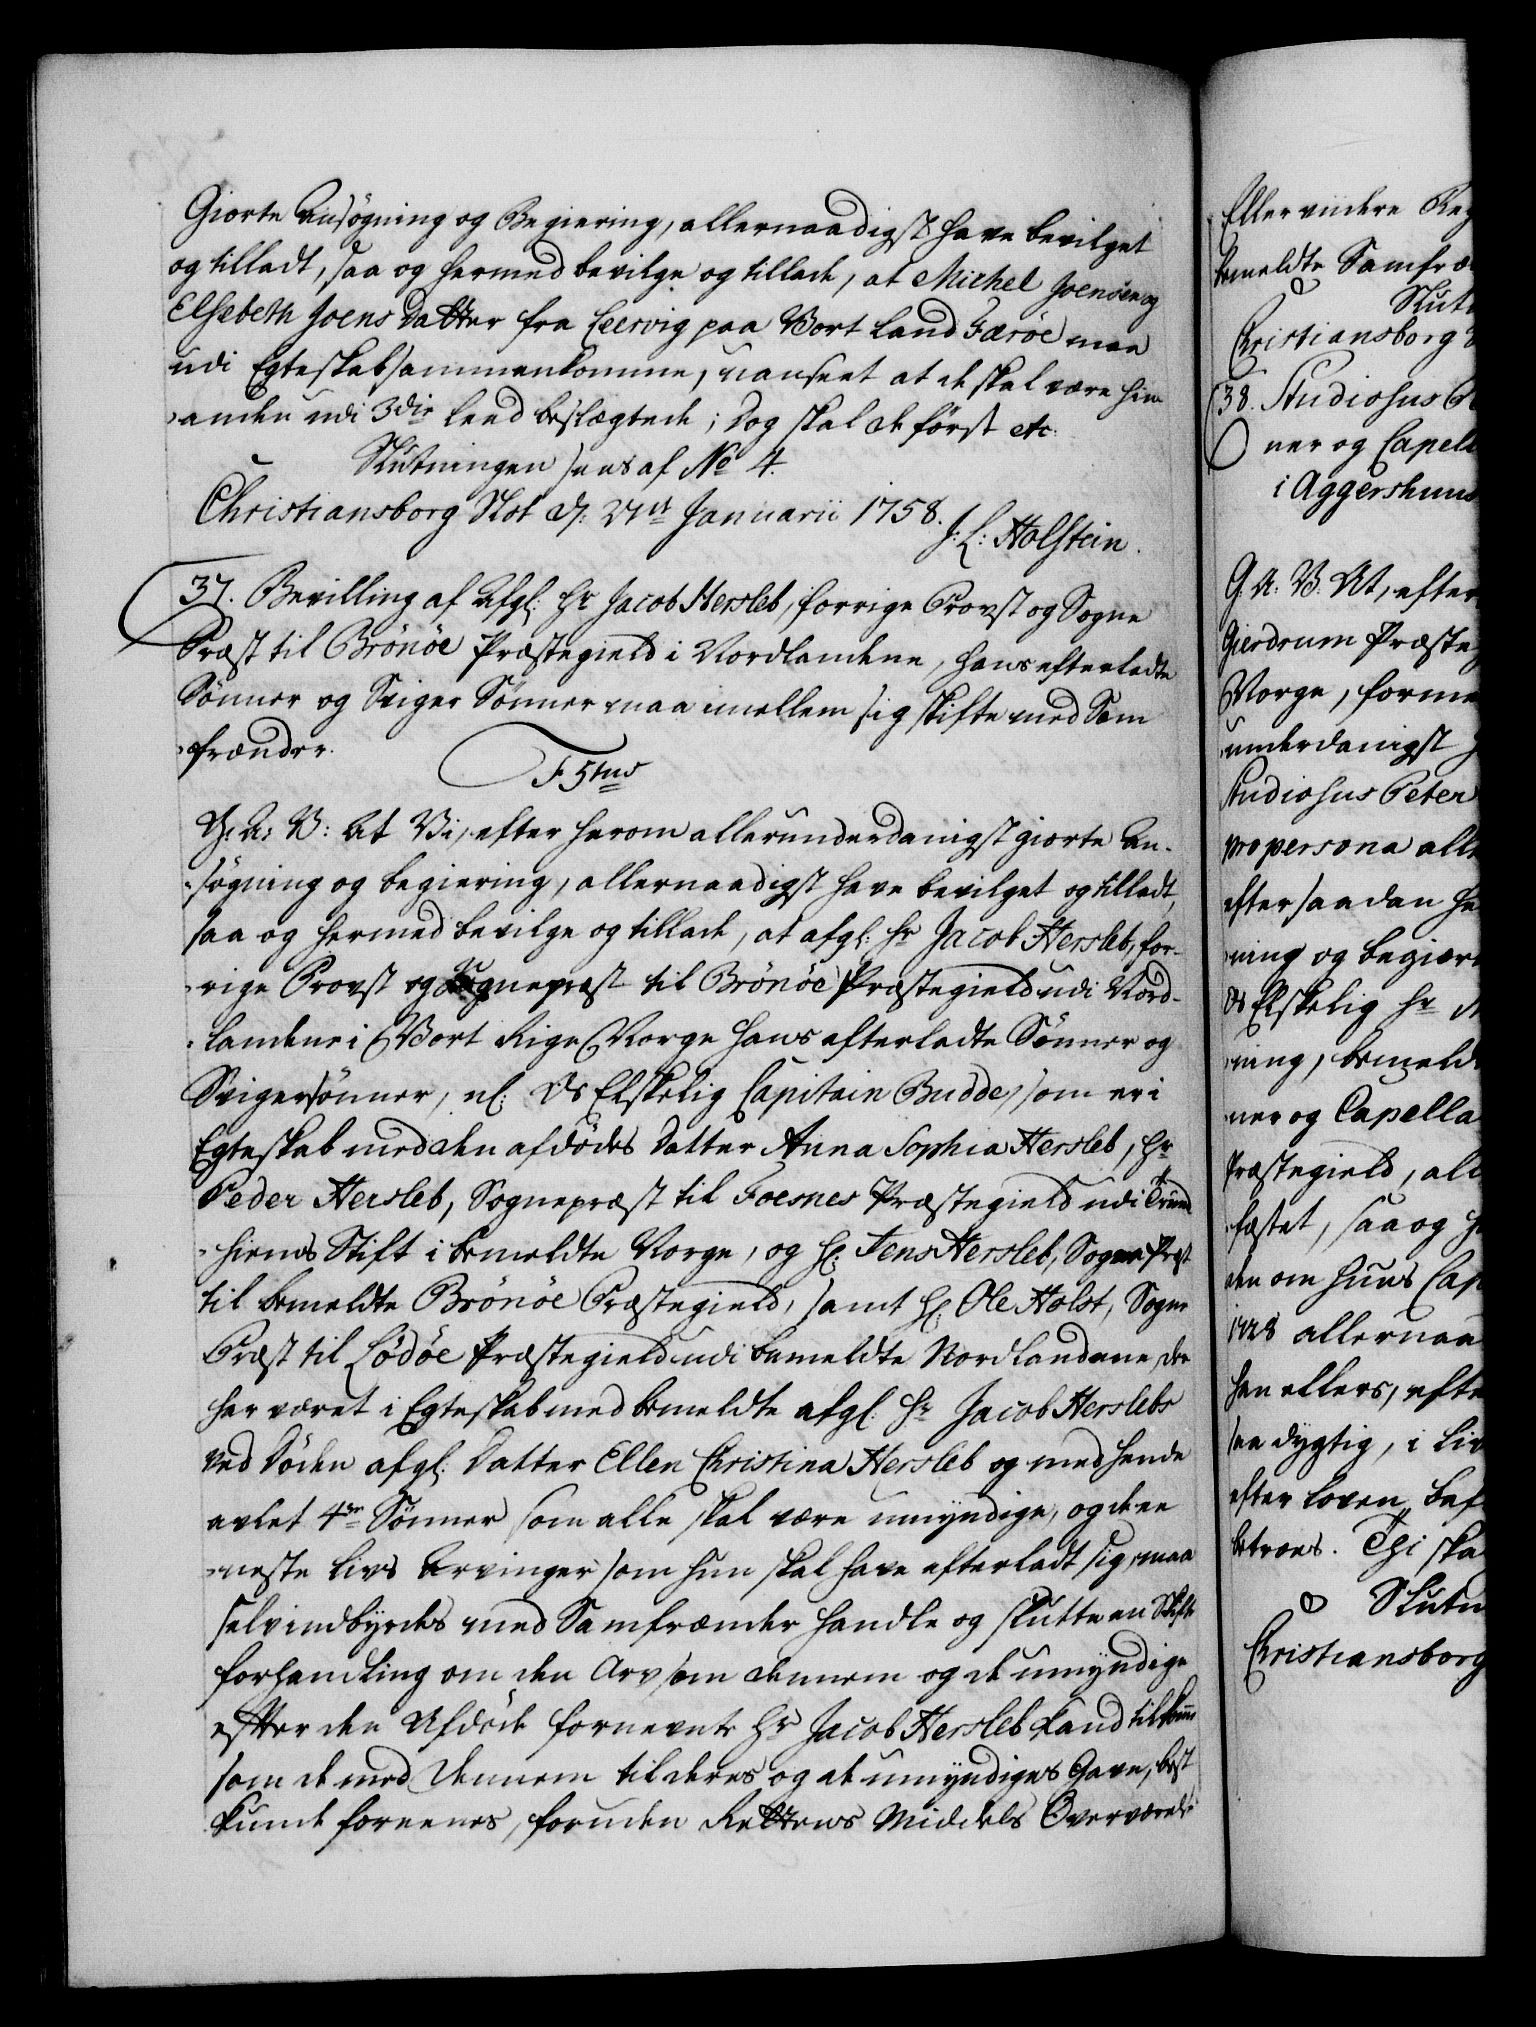 Giorte Ansøgning og Begiering, allernaadigst have bevilget
og tilladt, saa og hermed bevilge og tillade, at Michel Joensen og
Elsebeth Joens Datter fra Leervig paa Vort Land Færøe maa
udi Egteskab sammenkomme, uanseet at de skal være hin¬
anden udi 3die Leed beslægtede; Dog skal de først etc:
Slutningen sees af No 4.
Christiansborg Slot d: 27de Januarii 1758.
J: L: Holstein.
37. Bevilling at Afgl: Hr Jacob Hersleb, forrige Provst og Sogne
Præst til Brönöe Præstegield i Nordlandene, hans efterladte
Sönner og Sviger Sönner maa imellem sig skifte med Sam
frænder.
F 5tus
G: A: V: At Vi, efter herom allerunderdanigst giorte An¬
søgning og begiering, allernaadigst have bevilget og tilladt,
saa og hermed bevilge og tillade, at afgl: Hr Jacob Hersleb, for¬
rige Provst og Sognepræst til Brönöe Præstegield udi Nord¬
landene i Vort Rige Norge hans efterladte Sönner og
Svigersönner, nl: Os Elskelig Capitain Budde, som er i
Egteskab med den afdödes Datter Anna Sophia Hersleb, Hr
Peder Hersleb, Sognepræst til Foesnes Præstegield udi Trund
hiems Stift i bemeldte Norge, og Hr: Jens Hersleb, Sogne Præst
til bemeldte Brönöe Præstegield, samt Hr: Ole Holst, Sogne
Præst til Lödöe Præstegield udi bemeldte Nordlandene, der
har været i Egteskab med bemeldte afgl: Hr Jacob Herslebs
ved Döden afgl: Datter Ellen Christina Hersleb og med hende
avlet 4re Sönner som alle skal være umyndige, og de ene
neste Livs Arvinger som hun skal have efterladt sig, maa
selv indbyrdes med Samfrænder handle og slutte en Skifte
forhandling om den Arv som dennem og de umyndige
efter den Afdöde fornevnte Hr Jacob Hersleb kand tilkomme
som de med Dennem til deres og de umyndiges Gavn, best
kunde foreenes, foruden Rettens Middels Overværelse
Eller videre Reg
bemeldte Samfræ
Slut
Christiansborg
38. Studiosus
ner og Capell
i Aggershuus
G. A. V. At, efter
Gierdrum Præste
Norge, forme
underdanigst
Studiosus Peter
pro persona alle
efter saadan he
ning og begiær
Os Elskelig Hr
ning, bemeld
ner og Capella
Præstegield, all
fæstet, saa og
den om huus Cap
1728 allernaa
han ellers, efte
saa dygtig, i Liv
efter Loven, bef
betroes. Thi ska
Slutn
Christiansborg